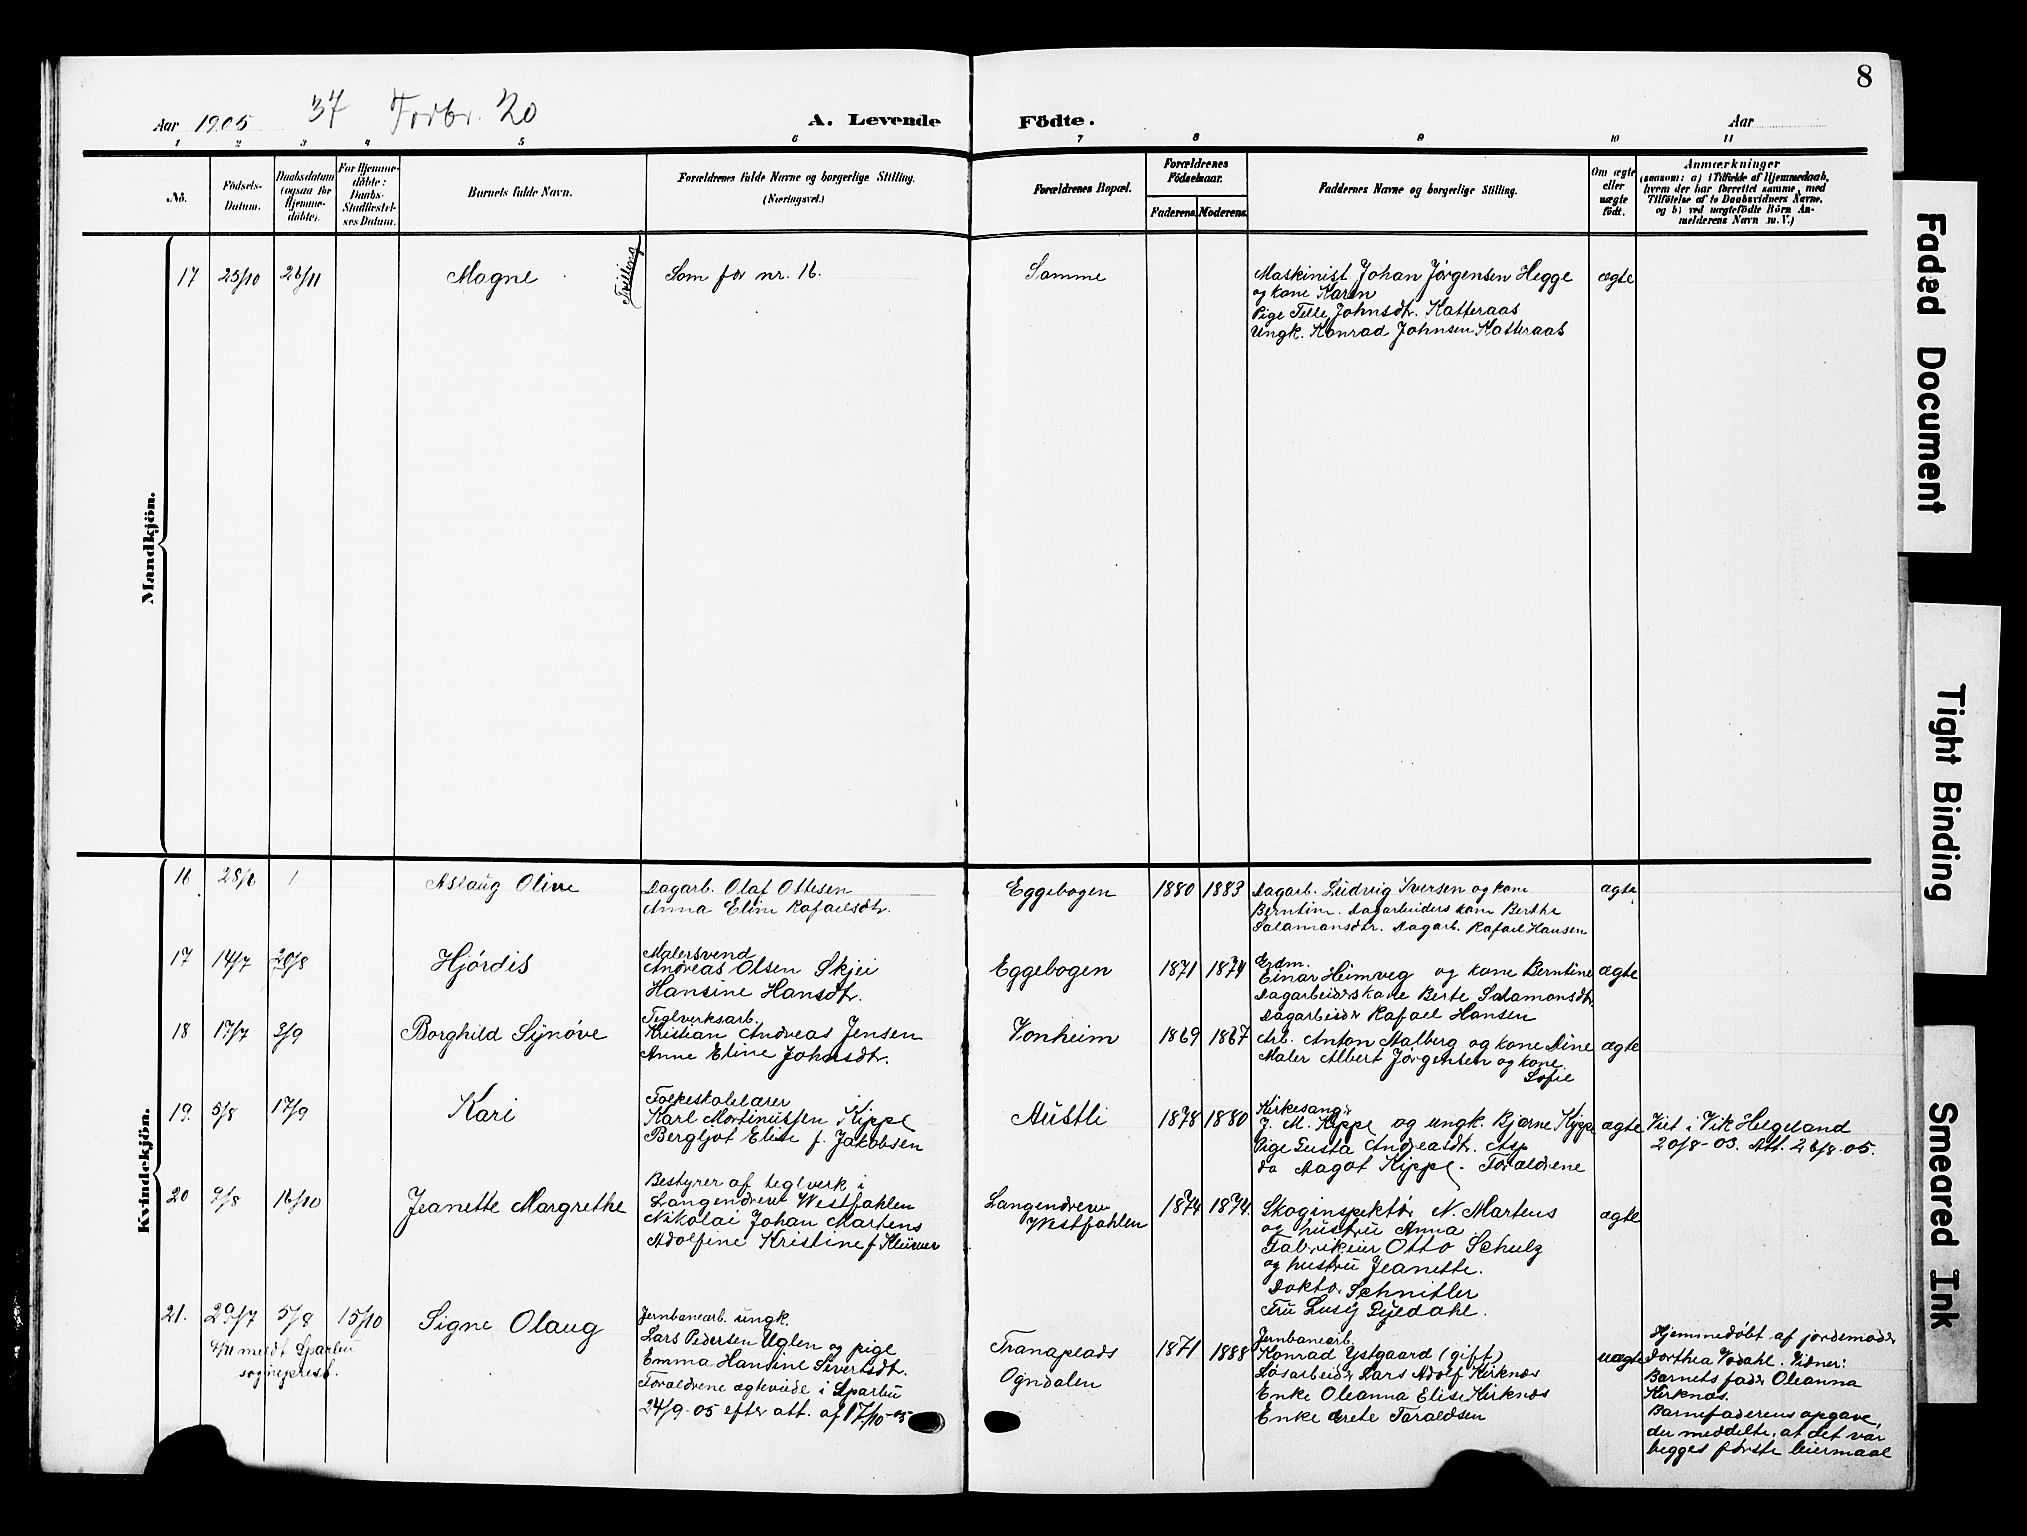 8
Aar 1905 37 Forbr. 20 A. Levende Födte. Aar
1 2 3 4 5 6 7 8 9 10 11
No.
Födsels-Datum.
Daabsdatum (ogsaa for Hjemmedöbte).
For Hjemmedöbte: Daabs-Stadfæstelses Datum.
Barnets fulde Navn.
Forældrenes fulde Navne og borgerlige Stilling.
(Næringsvei.)
Forældrenes Bopæl.
Forældrenes Födselsaar.
Faderens. Moderens.
Faddernes Navne og borgerlige Stilling.
Om ægte eller uægte födt.
Anmærkninger
(saasom: a) i Tilfælde af Hjemmedaab,
hvem der har forrettet samme, med
Tilföielse af to Daabsvidners Navne,
og b) ved uægtefödte Börn An-
melderens Navn m. V.)
Mandkjön.
17 25/10 26/11 Magne Tvilling Som for nr. 16. Samme
Maskinist Johan Jørgensen Hegge
og kone Karen
Pige Tille Johnsdt. Katteraas
Ungk. Konrad Johnsen Katteraas
ægte
Kvindekjön.
16 28/6 1 Aslaug Oline
Dagarb. Olaf Ottesen
Anna Eline Rafaelsdt.
Eggebogen 1880 1883
Dagarb. Ludvig Iversen og kone
Berntine. Dagarbeiders kone Berthe
Salamonsdtr. Dagarb. Rafael Hansen
ægte
17 14/7 20/8 Hjördis
Malersvend
Andreas Olsen Skjei
Hansine Hansdt.
Eggebogen 1871 1874
Grdm.
Einar Heimveg og kone Berntine
Dagarbeiderskone Berte Salamonsdt.
Dagarbeider Rafael Hansen
ægte
18 17/7 3/9 Borghild Synöve
Teglverksarb.
Kristian Andreas Jensen
Anne Eline Johnsdt.
Vonheim 1869 1867
Arb. Anton Malberg og kone Nine
Maler Albert Jørgensen og kone
Sofie
ægte
19. 5/8 17/9 Kari
Folkeskolelærer
Karl Martinussen Kippe
Bergljot Elise f. Jakobsen
Austli 1878 1880
Kirkesang.
J. M. Kippe og ungk. Bjarne Kippe
Pige Gusta Andreasdt. Asp
do Aagot Kippe. Forældrene
ægte
Viet i Vik Helgeland
20/8-03. Att. 26/8-05.
20 9/8 16/10 Jeanette Margrethe
Bestyrer af teglverk i
Langendreer Westfahlen
Nikolai Johan Martens
Adolfine Kristine f Klüwer
Langendreer
Westfahlen
1874 1874.
Skoginspektør N. Martens
og hustru Anna
Fabrikeier Otto Schulz
og hustru Jeanette.
Doktor Schnitler
Fru Lusy Gjedahl.
ægte
21. 29/7 5/8 15/10 Signe Olaug
4/11 meldt Sparbu
sogneprest.
Jernbanearb. ungk.
Lars Pedersen Uglen og pige
Emma Hansine Sivertsdt.
Forældrene ægteviede i Sparbu
24/9-05 efter att. af 17/10-05
Tranaplads
Ogndalen
1871 1888
Jernbanearb.
Konrad Ystgaard (gift)
Løsarbeider Lars Adolf Kirknæs
Enke Oleanna Elise Kirknæs
Enke Grete Toraldsen
uægte
Hjemmedøbt af jordemoder
Dorthea Vodahl. Vidner:
Barnets fader Oleanna
Kirknæs.
Barnefaderens opgave,
der meddelte, at det var
begges første leiermaal
Faded Document
Tight Binding
Smeared Ink